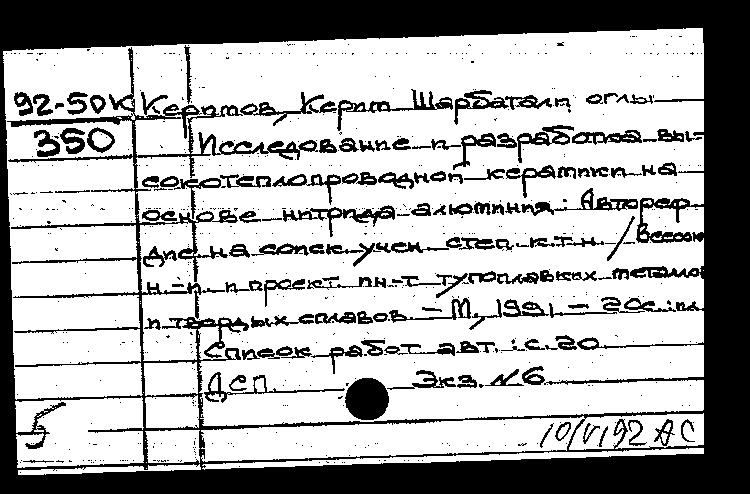 92-50К Керимов, Керим Шарбатали оглы
350 Исследование и разработка вы-
сокотеплопроводной керамики на
основе нитрида алюминия: Автореф.
дис. на соиск. учен. степ. к.т.н. / Всесоюз
н.-и. и проект. ин-т тугоплавких металлов
и твердых сплавов. – М., 1991. – 20с.: ил.
Список работ авт.: с. 20
ДСП. Экз. N6
5
10/VI 92 АС